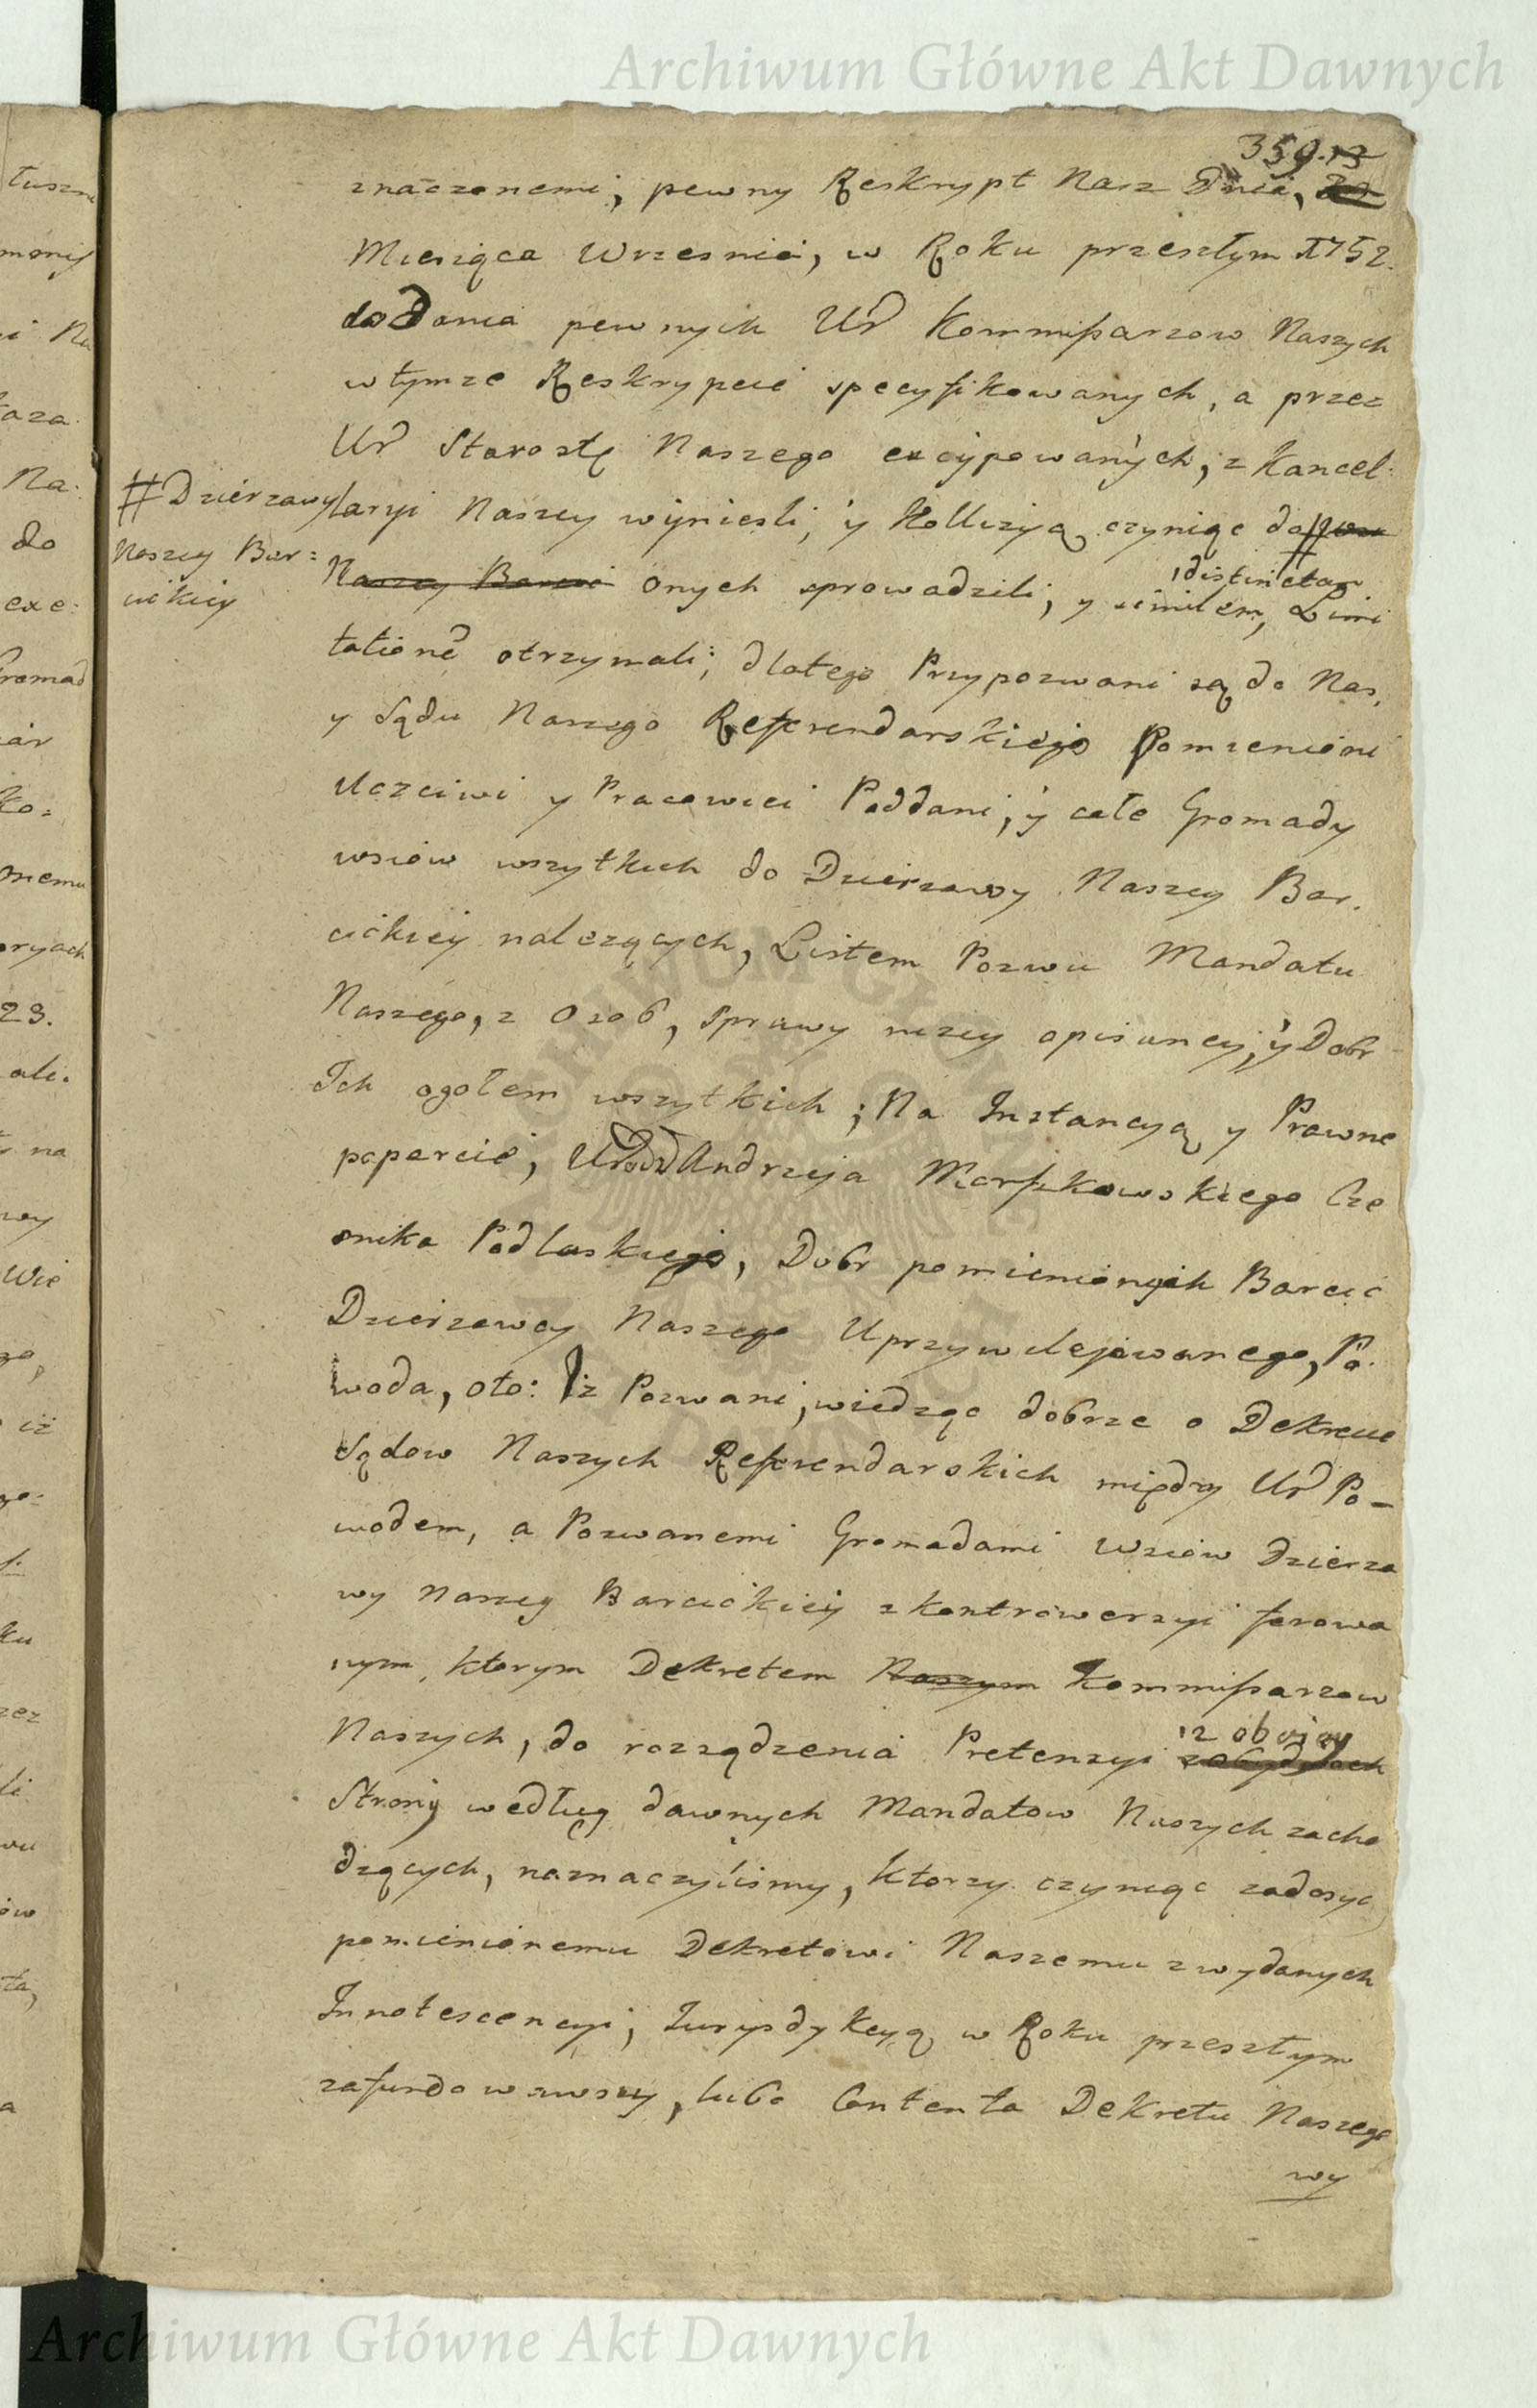 Archiwum Główne Akt Dawnych
359.
znaczonemi, pewny Reskrypt Nasz Dnia,
Miesiąca Wrzesnia, w Roku przeszłym 1752.
do dania pewnych Ur Kommissarzow Naszych
w tymze Reskrypcie specyfikowanych, a przez
Ur Starostę Naszego excypowanych, z Kancel:
laryi Naszey wynieśli, y Kollizyą czyniąc do #
# Dzierzawy
Naszey Bar=
cickiey
Naszey Barcic onych sprowadzili, y similem, distinctam Limi
tationē otrzymali; dlatego Przypozwani są do Nas,
y Sądu Naszego Referendarskiego Pomienieni
Uczciwi y Pracowici Poddani, y całe Gromady
wsiow wszytkich do Dzierzawy Naszey Bar.
cickiey nalezących, Listem Pozwu Mandatu
Naszego, z Osob, Sprawy nizey opisaney, y Dobr
Ich ogołem wszytkich; Na Instancyą y Prawne
poparcie, Urodz Andrzeja Marszkowskiego Cze
snika Podlaskiego, Dobr pomienionych Barcic
Dzierzawcy Naszego Uprzywilejowanego, Po.
woda, oto: Iz Pozwani, wiedząc dobrze o Dekrecie
Sądow Naszych Referendarskich między Ur Po-
wodem, a Pozwanemi Gromadami Wsiow Dzierza
wy Naszey Barcickiey z kontrowersyi ferowa
nym, ktorym Dekretem Naszym Kommissarzow
Naszych, do rozsądzenia Pretensyi z oboiey
Strony według dawnych Mandatow Naszych zacho
dzących, naznaczyliśmy, ktorzy czyniąc zadosyc
pomienionemu Dekretowi Naszemu z wydanych
Innotescencyi, Jurysdykcyą w Roku przeszłym
zafundowawszy, lubo Contenta Dekretu Naszego
wy
Archiwum Główne Akt Dawnych